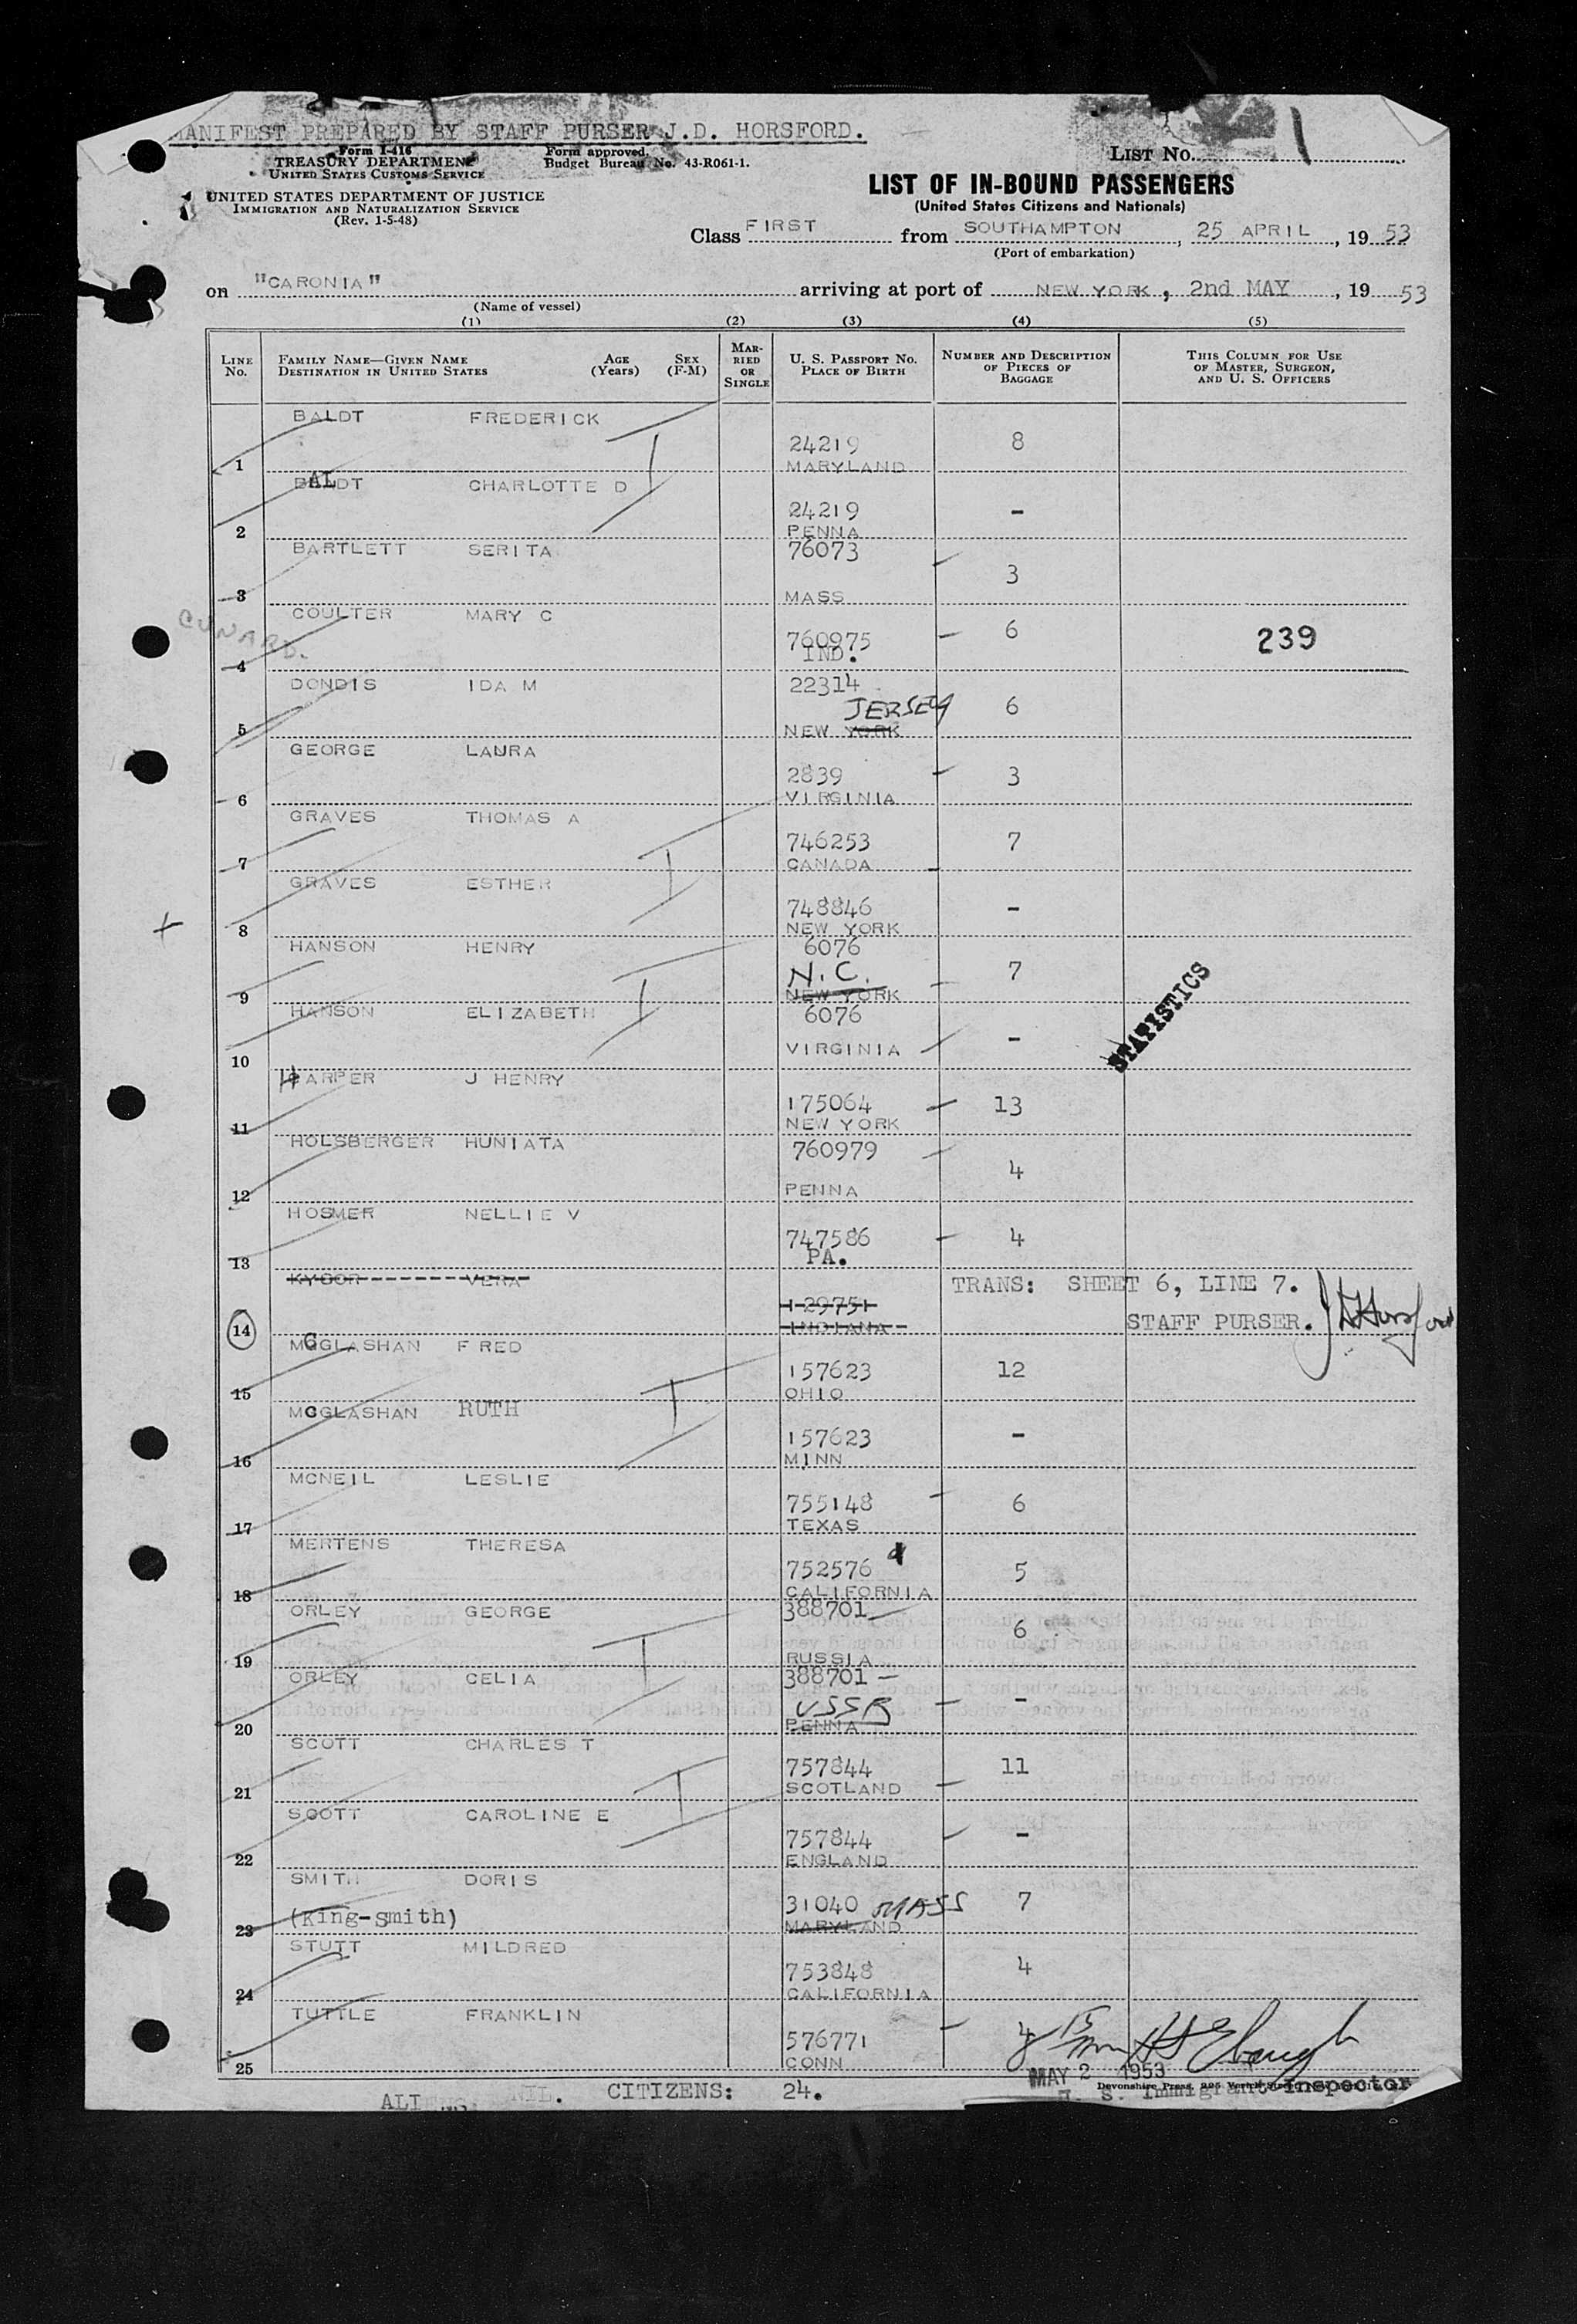 MANIFEST PREPARED BY STAFF PURSER J.D. HORSFORD.
Form I-416
TREASURY DEPARTMENT
UNITED STATES CUSTOMS SERVICE
Form approved.
Budget Bureau No. 43-R061-1.
LIST No. 1
UNITED STATES DEPARTMENT OF JUSTICE
IMMIGRATION AND NATURALIZATION SERVICE
(Rev. 1-5-48)
LIST OF IN-BOUND PASSENGERS
(United States Citizens and Nationals)
Class FIRST from SOUTHAMPTON, 25 APRIL, 19 53
(Port of embarkation)
on "CARONIA" arriving at port of NEW YORK, 2nd MAY, 19 53
(Name of vessel)
(1) (2) (3) (4) (5)
LINE No. FAMILY NAME—GIVEN NAME DESTINATION IN UNITED STATES AGE (Years) SEX (F-M) MARRIED OR SINGLE U. S. PASSPORT No. PLACE OF BIRTH NUMBER AND DESCRIPTION OF PIECES OF BAGGAGE THIS COLUMN FOR USE OF MASTER, SURGEON, AND U. S. OFFICERS
BALDT FREDERICK
24219 8
1 MARYLAND
BALDT CHARLOTTE D
24219 -
2 PENNA
BARTLETT SERITA 76073
3
3 MASS
COULTER MARY C
CUNARD.
760975 6 239
4 IND.
DONDIS IDA M 22314
JERSEY 6
5 NEW YORK
GEORGE LAURA
2839 3
6 VIRGINIA
GRAVES THOMAS A
746253 7
7 CANADA
GRAVES ESTHER
748846 -
8 NEW YORK
HANSON HENRY 6076
N.C. 7
9 NEW YORK
HANSON ELIZABETH 6076
STATISTICS
10 VIRGINIA -
HARPER J HENRY
175064 13
11 NEW YORK
HOLSBERGER HUNIATA 760979
4
12 PENNA
HOSMER NELLIE V
747586 4
13 PA.
KYGOR VERA TRANS: SHEET 6, LINE 7.
129751
14 INDIANA STAFF PURSER. J D Horsford
MCGLASHAN FRED
157623 12
15 OHIO
MCGLASHAN RUTH
157623 -
16 MINN
MCNEIL LESLIE
755148 6
17 TEXAS
MERTENS THERESA
752576 5
18 CALIFORNIA
ORLEY GEORGE 388701
6
19 RUSSIA
ORLEY CELIA 388701
USSR -
20 PENNA
SCOTT CHARLES T
757844 11
21 SCOTLAND
SCOTT CAROLINE E
757844 -
22 ENGLAND
SMITH DORIS
31040 MASS 7
23 (King-smith) MARYLAND
STUTT MILDRED
753848 4
24 CALIFORNIA
TUTTLE FRANKLIN
576771 4
25 CONN
MAY 2 1953
Devonshire Press,
U. S. Immigrant Inspector
ALIENS NIL. CITIZENS: 24.